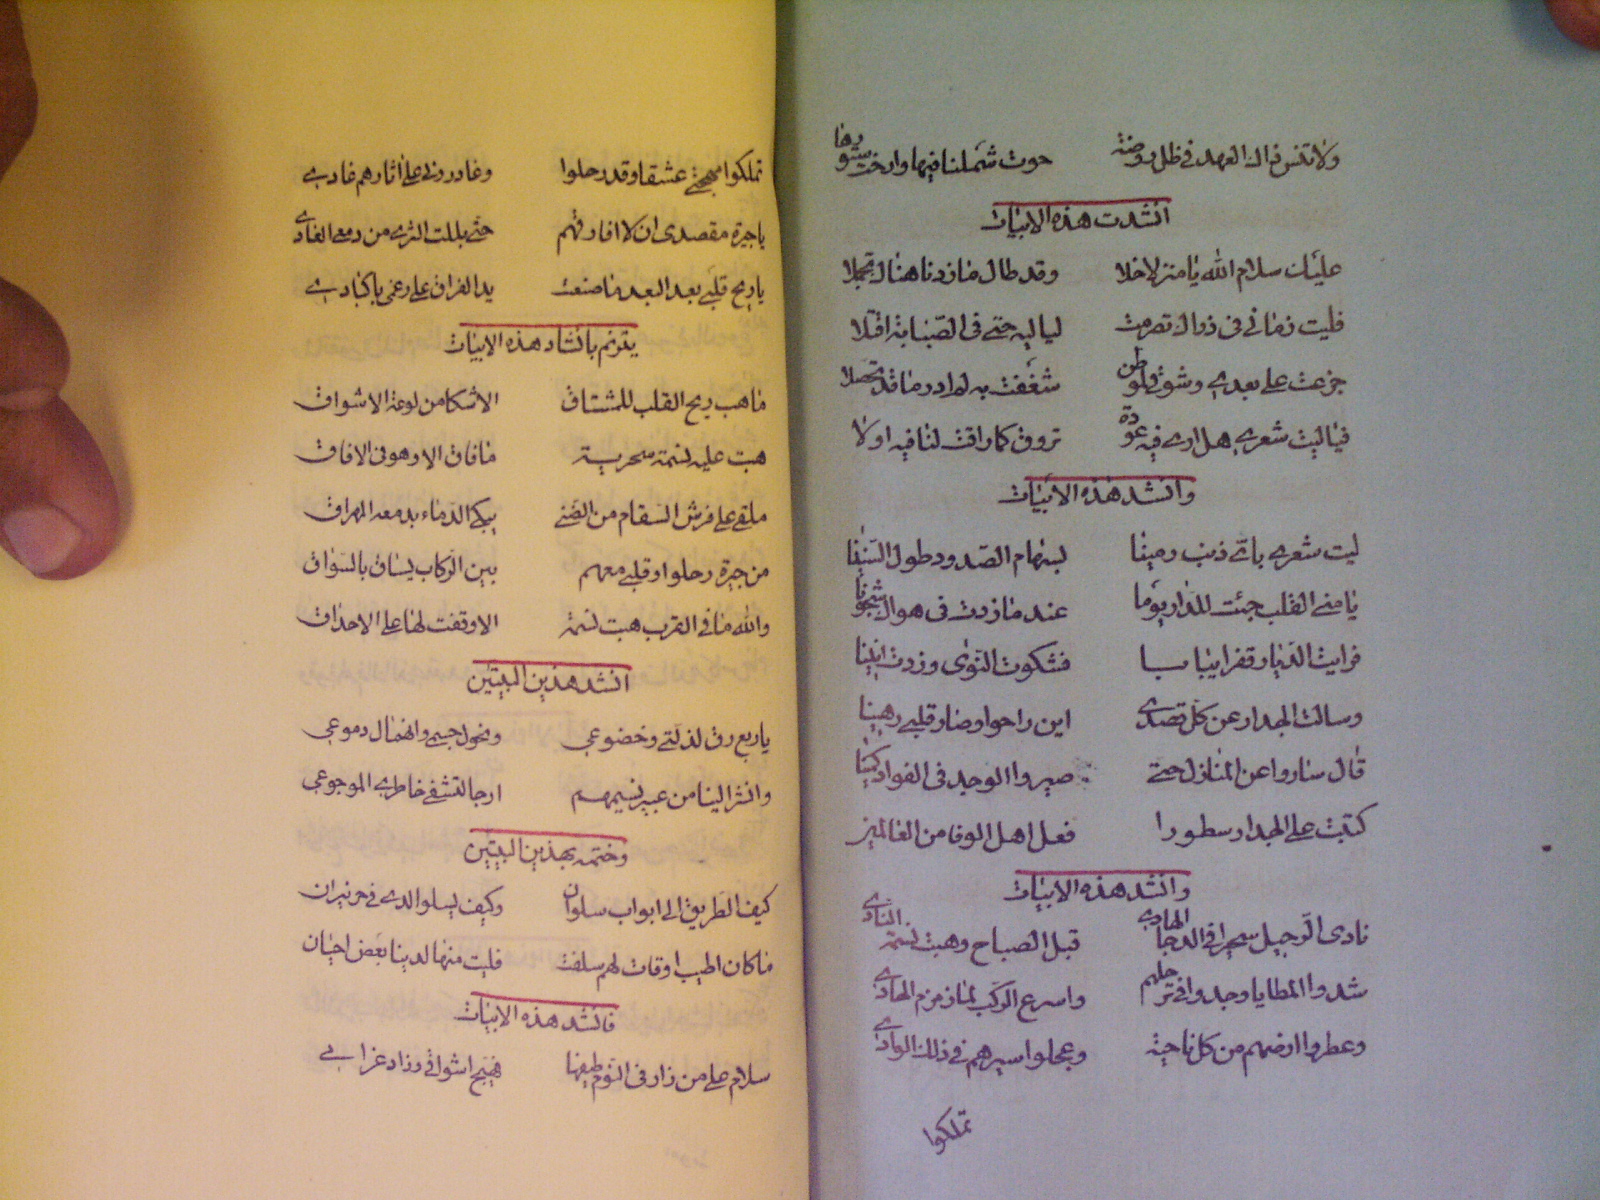 ولا تنس ذاك العهد في ظل روضة حوت شملنا فيها وارخت ستورها
انشدت هذه الابيات
عليك سلام الله يا منزلا خلا وقد طال ما زدنا هناك تجملا
فليت زماني في ذراك تصرمت لياليه حتى في الصبابة اقتلا
جزعت على بعدي وشوقي لموطن شغفت به لم ادر ما قد تحصلا
فيا ليت شعري هل ارى فيه عودة تروق كما راقت لنا فيه اولا
وانشد هذه الابيات
ليت شعري باي ذنب رمينا بسهام الصدود طول السنينا
يا منى القلب جئت للدار يوما عند ما زدت في هواك شجونا
فرايت الديار قفرا يبابا فشكوت النوى وزدت انينا
وسالت الجدار عن كل قصدي اين راحوا وصار قلبي رهينا
قال ساروا عن المنازل حتى صيروا الوجد في الفواد كمينا
كتبت على الجدار سطورا فعل اهل الوفا من العالمين
وانشد هذه الابيات
نادى الرحيل سحيرا في الدجا الهادي قبل الصباح وهبت نسمة النادي
شدوا المطايا وجدوا في ترحلهم واسرع الركب لما زمزم الحادي
وعطروا ارضهم من كل ناحية وعجلوا سيرهم في ذلك الوادي
تملكوا
تملكوا مهجتي عشقا وقد رحلوا وغادروني على اثارهم غادي
يا جيرة مقصدي ان لا افارقهم حتى بللت الثرى من دمعي الغادي
يا ويح قلبي بعد البعد ما صنعت يد الفراق على رغمي باكبادي
يترنم بانشاد هذه الابيات
ما هب ريح القلب للمشتاق الا شكا من لوعة الاشواق
هبت عليه نسمة سحرية ما فاق الا وهو في الافاق
ملقى على فرش السقام من الضنى يبكي الدماء بدمعه المهراق
من جيرة رحلوا وقلبي معهم بين الركاب يساق بالسواق
والله ما في القرب هبت نسمة الا وقفت لها على الاحداق
انشد هذين البيتين
يا ربع رق لذلتي وخضوعي ونحول جسمي وانهمال دموعي
وانثر الينا من عبير نسيمهم ارجا لتشفي خاطري الموجوعي
وختمه بهذين البيتين
كيف الطريق الى ابواب سلوان وكيف يسلو الذي في حر نيران
ما كان اطيب اوقات لهم سلفت فليت منها لدينا بعض احيان
فانشد هذه الابيات
سلام على من زار في النوم طيفها فهيج اشواقي وزاد غرابي